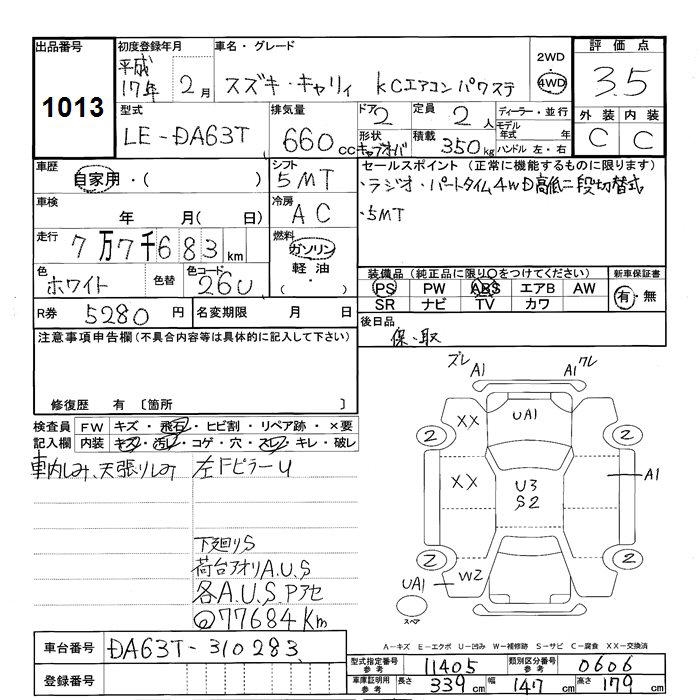 出品番号 初度登録年月 車名・グレード 評価点
1013 平成17年 2月 スズキ・キャリィ KCエアコン パワステ 2WD 4WD 3.5
型式 排気量 ドア 2 定員 2人 ディーラー・並行 外装 内装
LE-DA63T 660cc 形状 キャブオーバ 積載 350kg モデル年式 年 ハンドル 左・右 C C
車歴 自家用・( ) シフト 5MT セールスポイント (正常に機能するものに限ります)
・ラジオ・パートタイム4WD高低二段切替式
車検 年 月(日) 冷房 AC ・5MT
走行 7万7千683km 燃料 ガソリン 軽油 ( ・ )
色 ホワイト 色替 色コード 26U
装備品 (純正品に限り○をつけてください) 新車保証書
PS PW ABS エアB AW 有・無
SR ナビ TV カワ
R券 5280円 名変期限 月 日
後日品 保・取
注意事項申告欄 (不具合内容等は具体的に記入して下さい)
修復歴 有 〔箇所 〕
検査員 FW キズ・飛石・ヒビ割・リペア跡・×要
記入欄 内装 キズ・汚れ・コゲ・穴・スレ・キレ・破レ
車内しみ、天張りしみ 左FピラーU
下廻りS
荷台アオリA.U.S
各A.U.S Pアセ
77684Km
ズレ A1 A1 ワレ
XX UA1
2 2
XX U3 S2 A1
2 2
UA1 W2
スペア
車台番号 DA63T-310283
登録番号
A-キズ E-エクボ U-凹み W-補修跡 S-サビ C-腐食 XX-交換済
型式指定番号 参考 11405 類別区分番号 参考 0606
車庫証明用 参考 長さ 339cm 幅 147cm 高さ 179cm